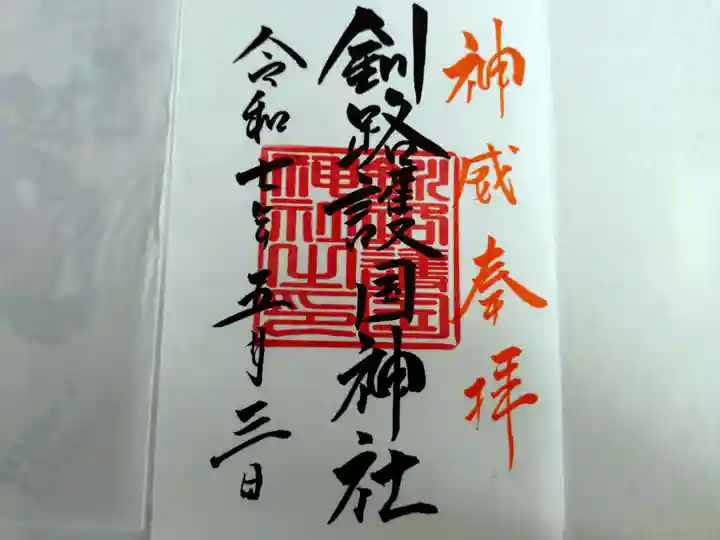 神威奉拝
釧路護国神社
釧路護国
神社之印
令和七年五月三日